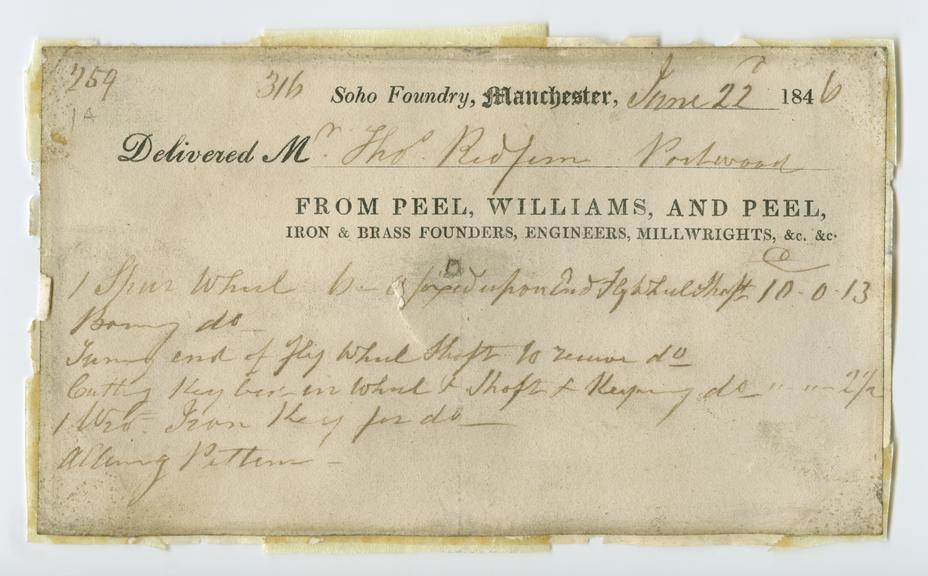 259 316 Soho Foundry, Manchester, June 22d 1846
1A
Delivered Mr. Thos. Redfern Portwood
FROM PEEL, WILLIAMS, AND PEEL,
IRON & BRASS FOUNDERS, ENGINEERS, MILLWRIGHTS, &c. &c.
1 Spur Wheel fixed upon End Fly Wheel Shaft 10-0-13
Boring do
Turng end of Fly Wheel Shaft to receive do
Cuttg Key in Wheel & Shaft & Keeping do " " 2½
1 Wro. Iron Key for do
Altering Pattern